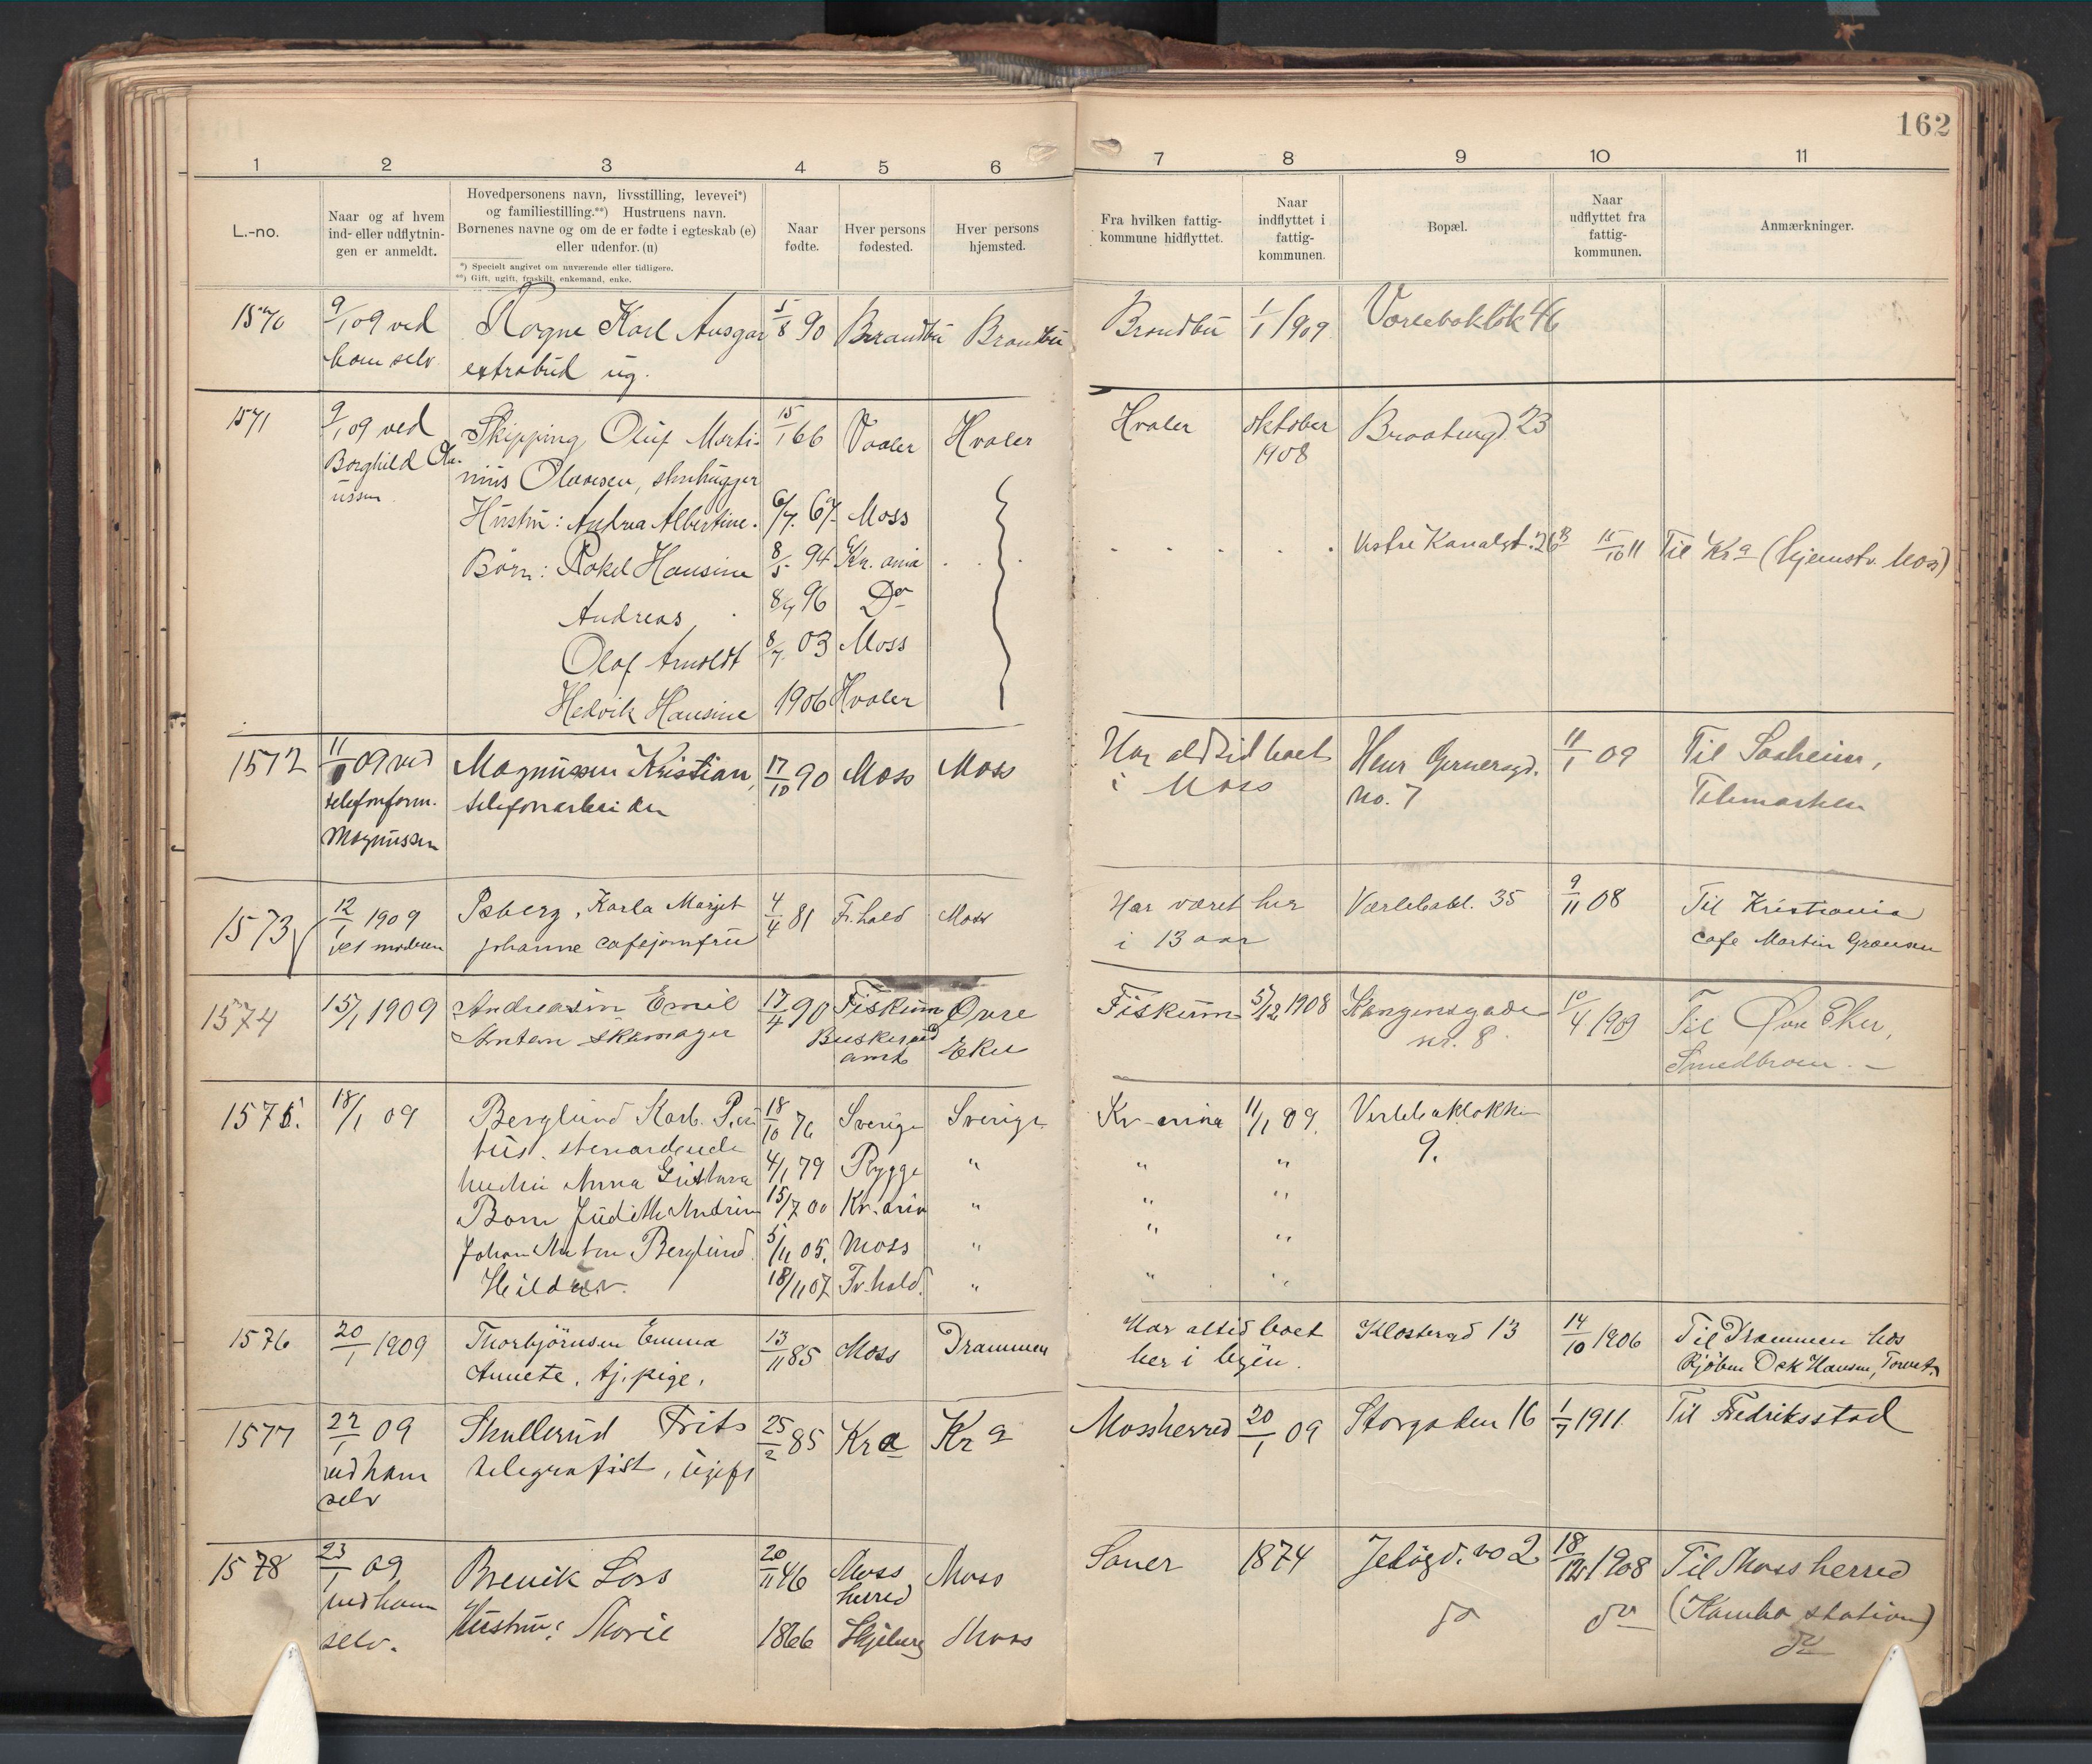 162
1 2 3 4 5 6 7 8 9 10 11
L.-no.
Naar og af hvem
ind- eller udflytnin-
gen er anmeldt.
Hovedpersonens navn, livsstilling, levevei*)
og familiestilling.**) Hustruens navn.
Børnenes navne og om de er fødte i egteskab (e)
eller udenfor. (u)
*) Specielt angivet om nuværende eller tidligere.
**) Gift, ugift, fraskilt, enkemand, enke.
Naar
fødte.
Hver persons
fødested.
Hver persons
hjemsted.
Fra hvilken fattig-
kommune hidflyttet.
Naar
indflyttet i
fattig-
kommunen.
Bopæl.
Naar
udflyttet fra
fattig-
kommunen.
Anmærkninger.
1570 9/1 09 ved Rogne Karl Ansgar 5/8 90 Brandbu Brandbu Brandbu 1/1 1909 46
ham selv extrabud ug.
1571 9/1 09 ved Skipping, Oluf Marti- 15/1 66 Vaaler Hvaler Hvaler Oktober Braatengd. 23
Borghild Ola- nius Olavesen, stenhugger 1908
ussen
Hustru: Andrea Albertine. 6/7 67 Moss
Børn: Rakel Hansine 8/5 94 Kr.ania Vestre Kanalgt. 26B 15/10 11 Til Kra (hjemstv. Moss)
Andreas 8/9 96 Do
Olaf Arnoldt 8/7 03 Moss
Hedvik Hansine 1906 Hvaler
1572 11/1 09 ved Magnussen Kristian, 17/10 90 Moss Moss Har altid boet Henr Gernersgd. 11/1 09 Til Saaheim,
telefonform. telefonarbeider i Moss No. 7 Telemarken
Magnussen
1573 12/1 1909 Isberg, Karla Margit 4/4 81 Fr.hald Moss Har været her Værlebakl. 35 9/11 08 Til Kristiania
ved moderen Johanne cafejomfru i 13 aar cafe Martin
1574 15/1 1909 Andreasen Emil 17/4 90 Fiskum Øvre Fiskum 5/12 1908 Kongensgade 10/4 1909 Til Øvre Eker,
Anton skomager Buskerud Eker nr. 8
amt
1575. 18/1 09 Berglund Karl. 18/10 76 Sverige Sverige Kr-ania 11/1 09. Verlebakløkken
9.
hustru Anna Gustava 4/1 79 Rygge " " "
Barn Judith 15/7 00 Kr.ania " " "
Johan Anton Berglund 5/11 05. Moss " " "
18/11 07 Fr.hald. " " "
1576 20/1 1909 Thorbjörnsen Emma 13/11 85 Moss Drammen Har altid boet Klostergd 13 14/10 1906 Til Drammen hos
Annete, tj. pige. her i byen. Kjøbm Osk Hansen,
1577 22/1 09 Skullerud Frits 25/2 85 Kra Kra Mossherred 20/1 09 Storgaden 16 1/7 1911. Til Fredriksstad
ved ham telegrafist, ugift
selv
1578 23/1 09 Brevik Lars 20/11 46 Moss Moss Saner 1874 Jeløgd. no 2 18/12 1908 Til Moss herred
ved ham herred (Kambo station)
selv. Hustru: Marie 1866 Skjeberg Moss do do do